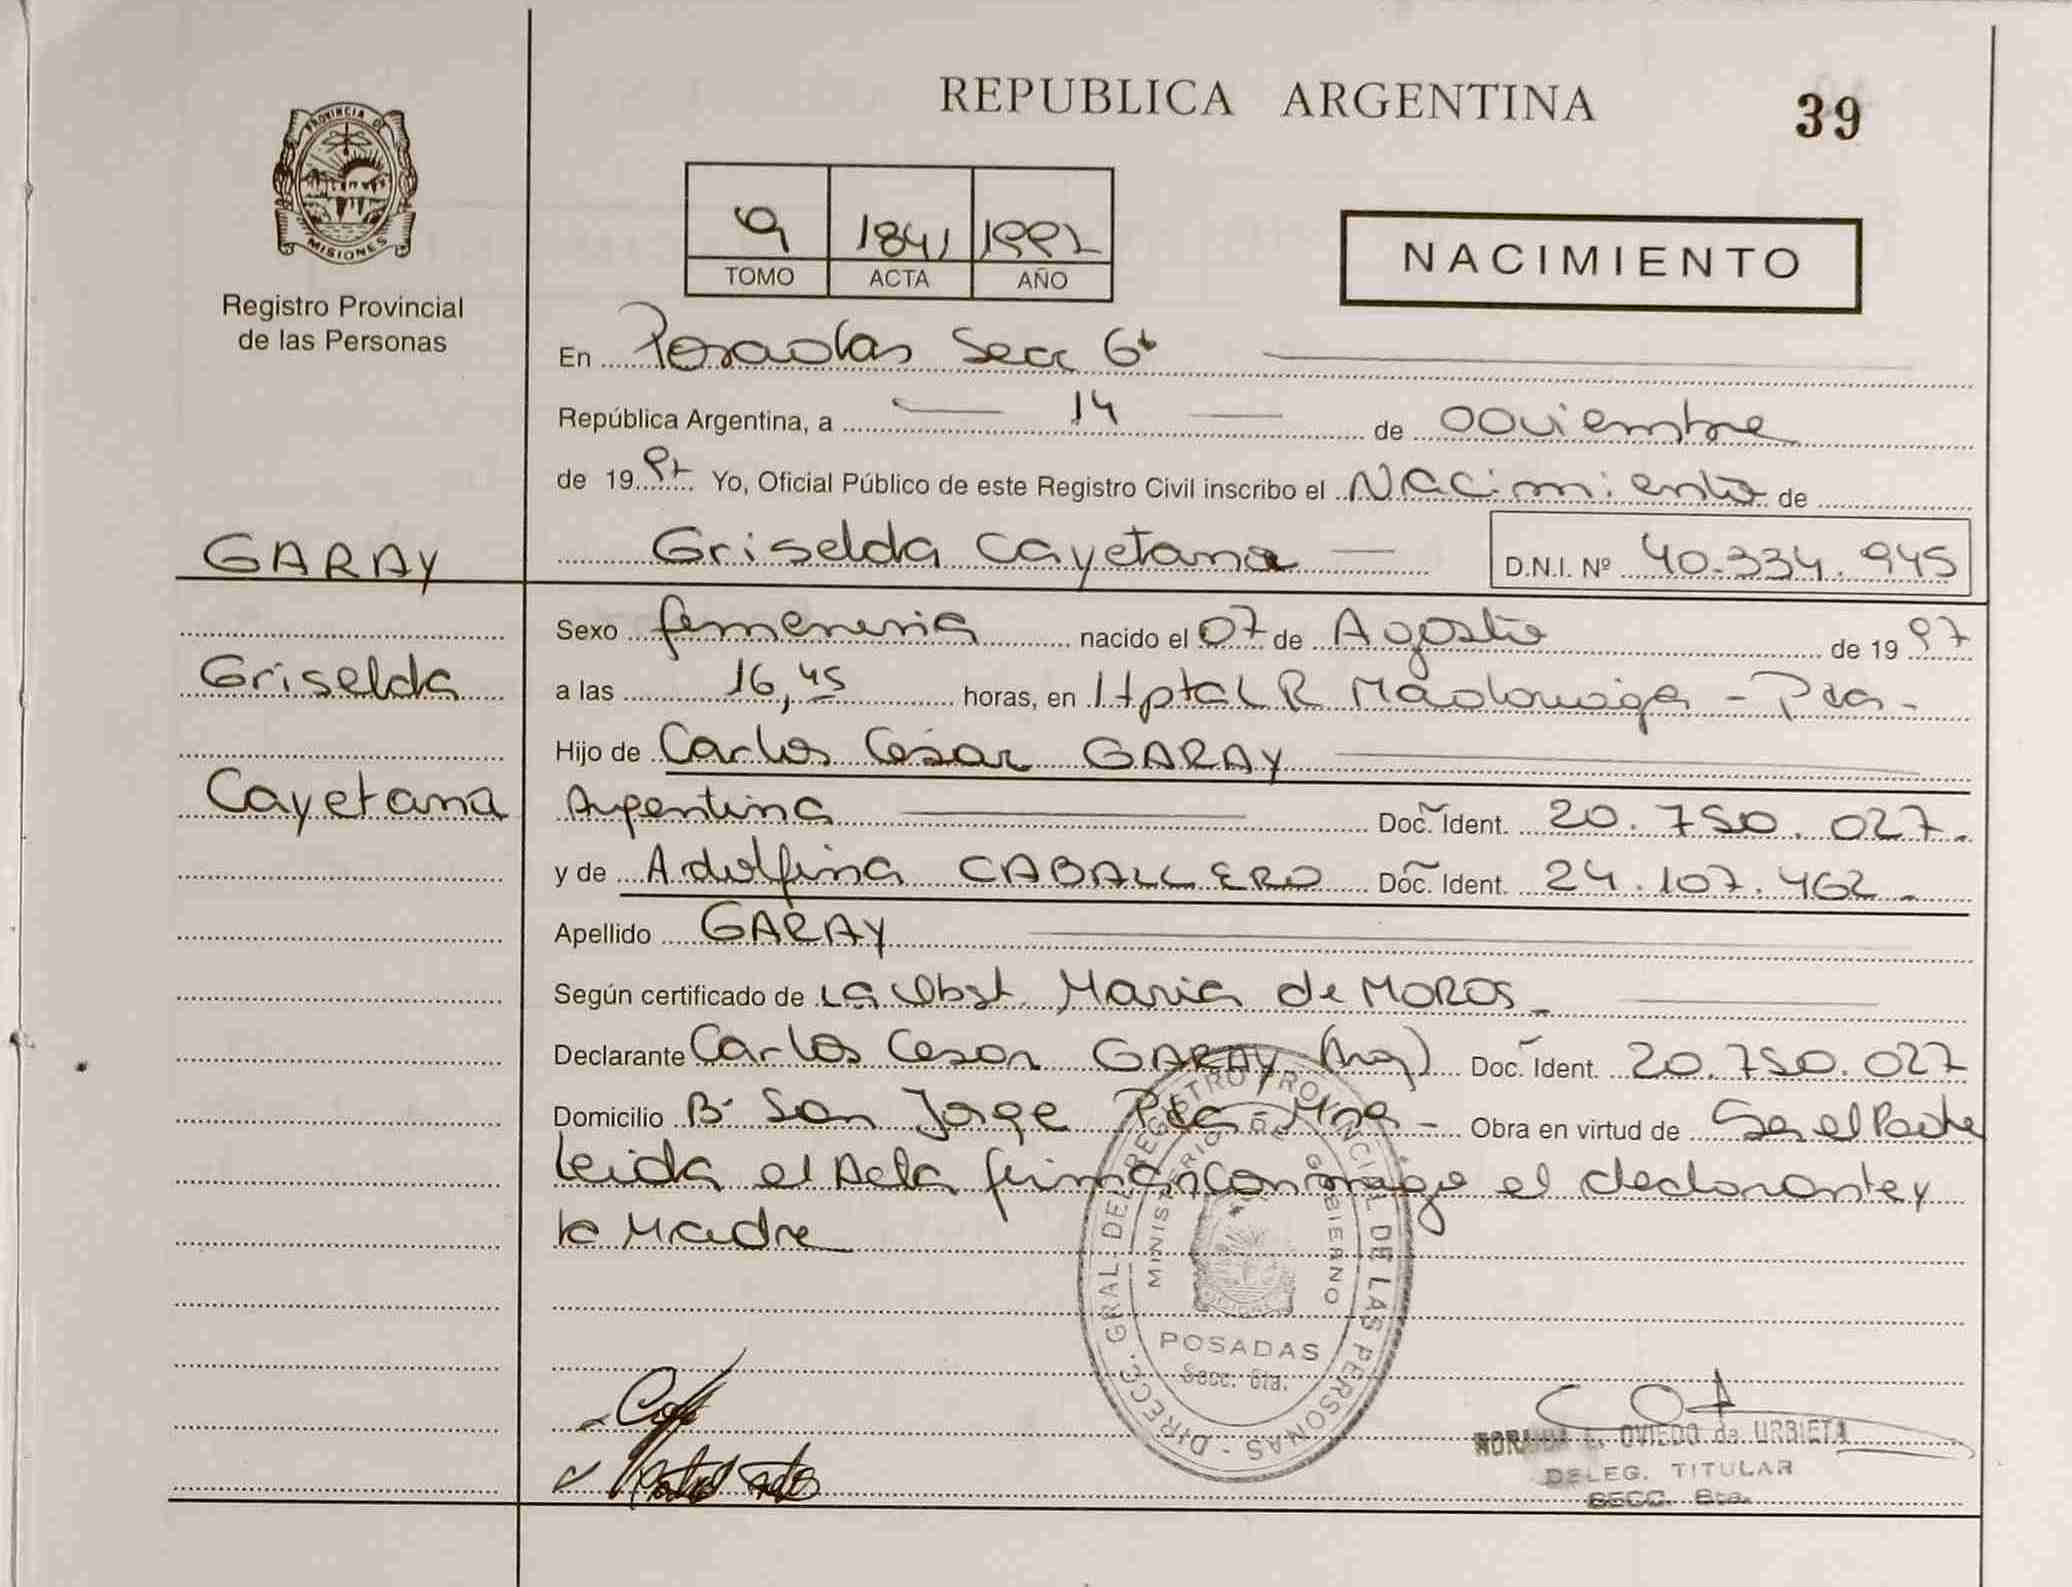 REPUBLICA ARGENTINA
39
PROVINCIA DE
MISIONES
Registro Provincial
de las Personas
9 1841 1997
TOMO ACTA AÑO
NACIMIENTO
En Posadas Secc 6ta
República Argentina, a 14 de noviembre
de 1997 Yo, Oficial Público de este Registro Civil inscribo el Nacimiento de
GARAY
Griselda Cayetana D.N.I. Nº 40.334.945
Sexo femenina nacido el 07 de Agosto de 1997
Griselda
a las 16,45 horas, en Hptal R Madariaga - Pdas -
Hijo de Carlos César GARAY
Cayetana
Argentina Doc. Ident. 20.750.027.
y de Adolfina CABALLERO Doc. Ident. 24.107.462.
Apellido GARAY
Según certificado de La Obst. Maria de MOROS
Declarante Carlos Cesar GARAY (Arg) Doc. Ident. 20.750.027
Domicilio Bº San Jorge Pdas Mnes - Obra en virtud de Ser el Padre
Leida el Acta firman conmigo el declarante y
la Madre
DIRECC. GRAL. DEL REGISTRO PROVINCIAL DE LAS PERSONAS
MINISTERIO DE GOBIERNO
POSADAS
Secc. 6ta.
OVIEDO de URBIETA
DELEG. TITULAR
SECC. 6ta.